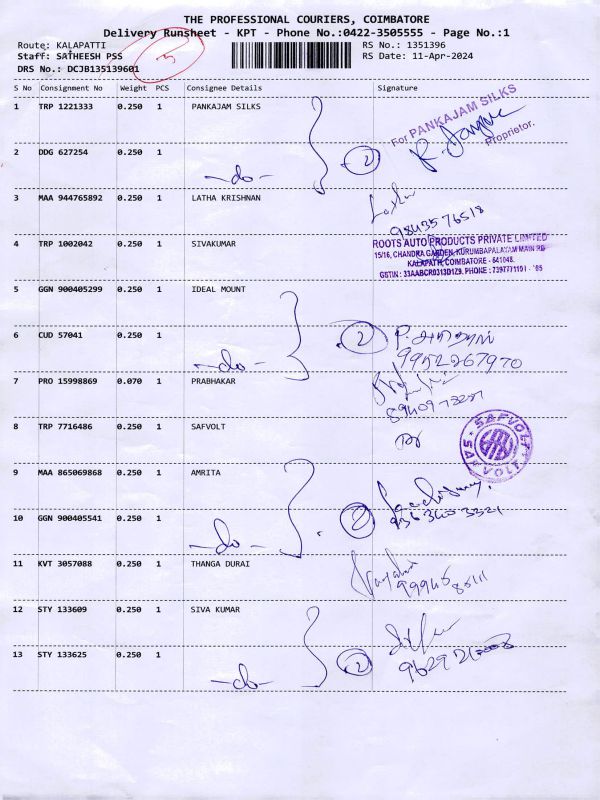 THE PROFESSIONAL COURIERS, COIMBATORE
Delivery Runsheet - KPT - Phone No.:0422-3505555 - Page No.:1
Route: KALAPATTI RS No.: 1351396
Staff: SATHEESH PSS RS Date: 11-Apr-2024
DRS No.: DCJB135139601
5
S No Consignment No Weight PCS Consignee Details Signature
1 TRP 1221333 0.250 1 PANKAJAM SILKS
For PANKAJAM SILKS
Proprietor.
2 DDG 627254 0.250 1
-do- 2
3 MAA 944765892 0.250 1 LATHA KRISHNAN
9843576518
4 TRP 1002042 0.250 1 SIVAKUMAR
ROOTS AUTO PRODUCTS PRIVATE LIMITED
15/16, CHANDRA GARDEN, KURUMBAPALAYAM MAIN RD
KALAPATTI, COIMBATORE - 641048.
GSTIN : 33AABCR0313D1Z9. PHONE : 7397771191
5 GGN 900405299 0.250 1 IDEAL MOUNT
6 CUD 57041 0.250 1 2
-do- 9952267970
7 PRO 15998869 0.070 1 PRABHAKAR
8 TRP 7716486 0.250 1 SAFVOLT
SAFVOLT
SAFVOLT
9 MAA 865069868 0.250 1 AMRITA
10 GGN 900405541 0.250 1 2
-do-
11 KVT 3057088 0.250 1 THANGA DURAI
12 STY 133609 0.250 1 SIVA KUMAR
13 STY 133625 0.250 1 2
-do-